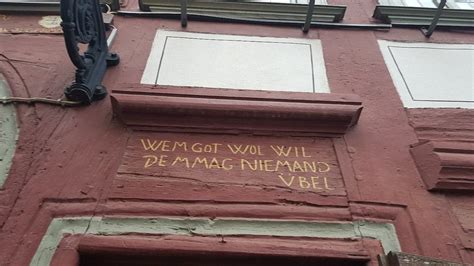 WEM GOT WOL WIL
DEM MAG NIEMAND
VBEL